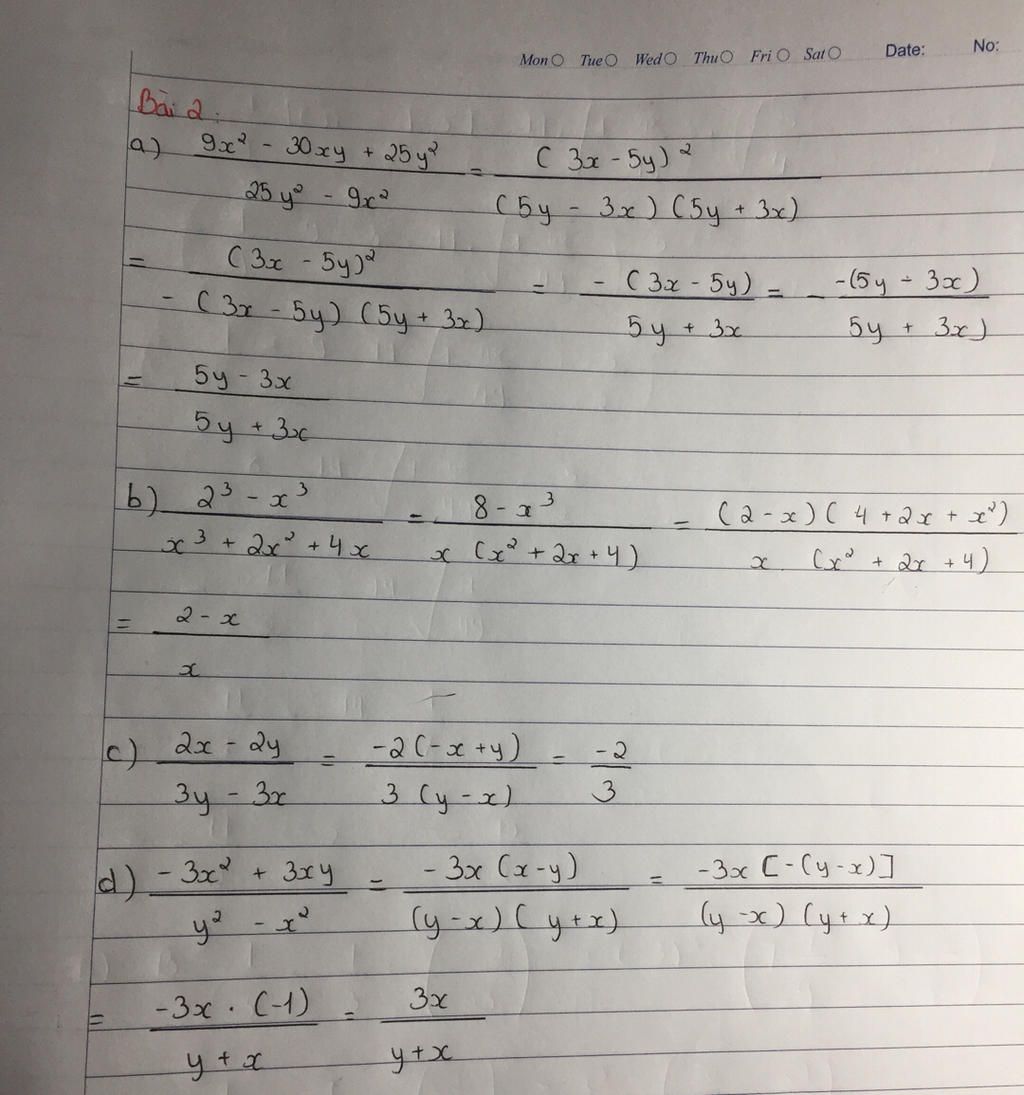 Mon Tue Wed Thu Fri Sat Date: No:
Bài 2:
a) (9x² - 30xy + 25y²)/(25y² - 9x²) = (3x - 5y)²/((5y - 3x)(5y + 3x))
= (3x - 5y)²/(-(3x - 5y)(5y + 3x)) = -(3x - 5y)/(5y + 3x) = -(-(5y - 3x))/(5y + 3x)
= (5y - 3x)/(5y + 3x)
b) (2³ - x³)/(x³ + 2x² + 4x) = (8 - x³)/(x(x² + 2x + 4)) = ((2 - x)(4 + 2x + x²))/(x(x² + 2x + 4))
= (2 - x)/x
c) (2x - 2y)/(3y - 3x) = (-2(-x + y))/(3(y - x)) = -2/3
d) (-3x² + 3xy)/(y² - x²) = (-3x(x - y))/((y - x)(y + x)) = (-3x[-(y - x)])/((y - x)(y + x))
= (-3x . (-1))/(y + x) = 3x/(y + x)